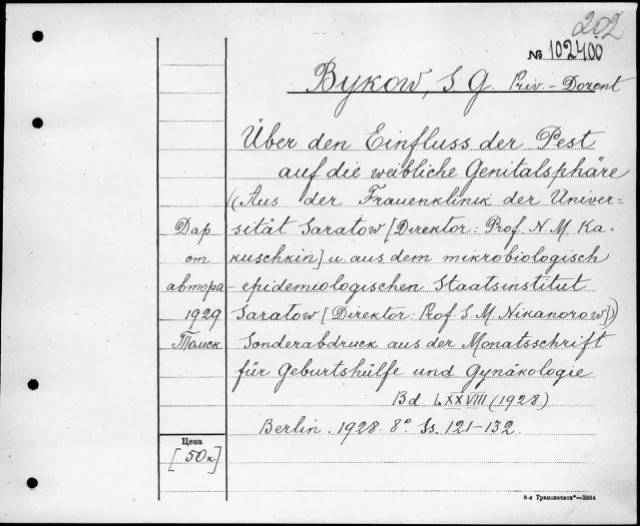 202
№ 102400
Bykow, S G. Priv.-Dozent
Über den Einfluss der Pest
auf die weibliche Genitalsphäre
((Aus der Frauenklinik der Univer=
sität Saratow [Direktor: Prof. N. M. Ka-
kuschkin] u. aus dem mikrobiologisch
-epidemiologischen Staatsinstitut
Saratow [Direktor: Prof. S. M. Nikanorow]))
Sonderabdruck aus der Monatsschrift
für Geburtshülfe und Gynäkologie
Bd LXXVIII (1928)
Berlin. 1928. 8° Ss. 121-132.
Дар
от
автора
1929
Томск
Цена
[50к]
8-я Транспечать"—3884